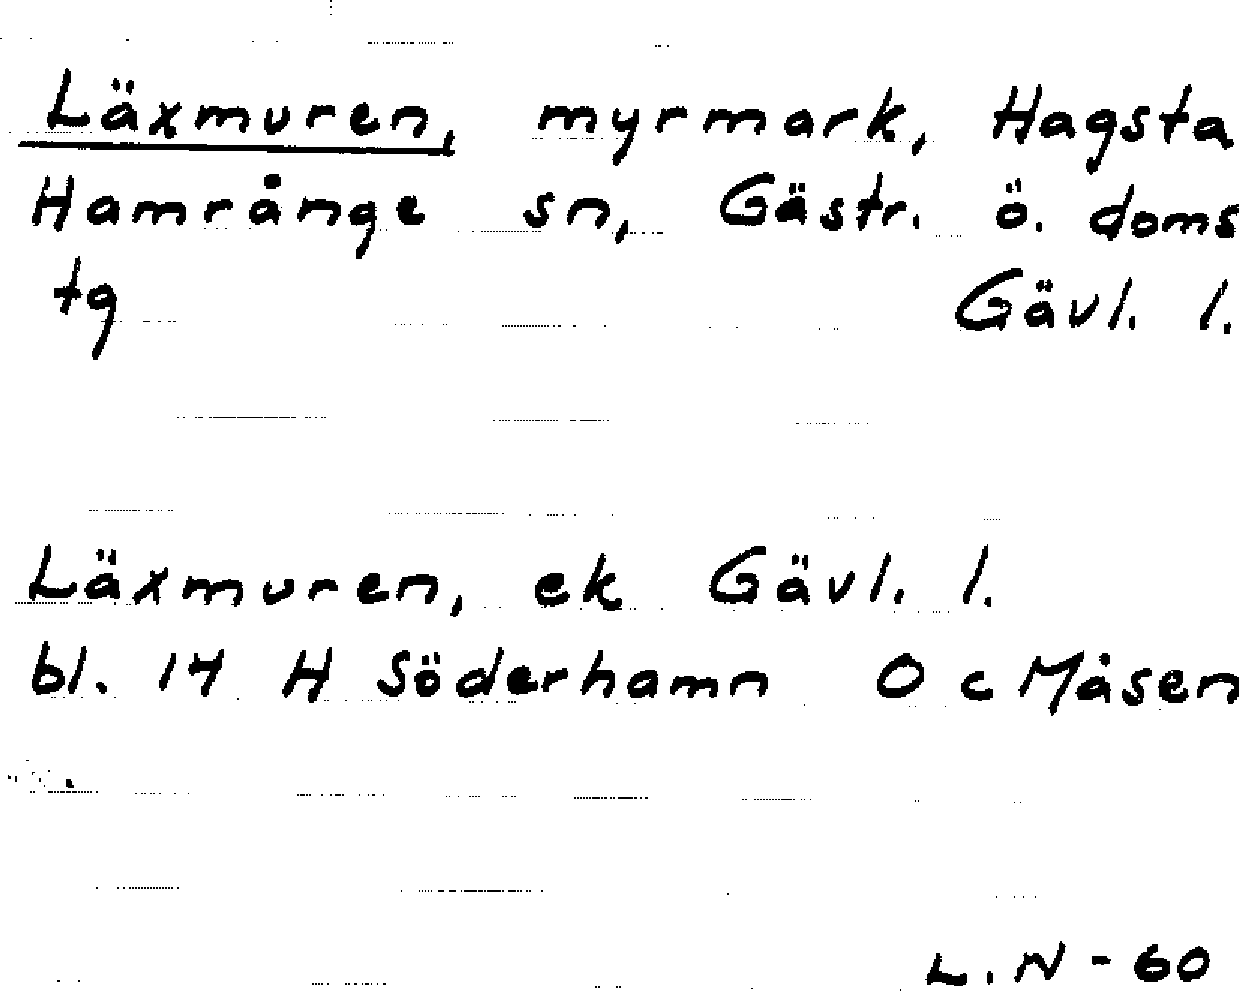 Läxmuren, myrmark, Hagsta
Hamrånge sn, Gästr. ö. doms
tg Gävl. l.
Läxmuren, ek Gävl. l.
bl. 14 H Söderhamn O c Måsen
L. N - 60